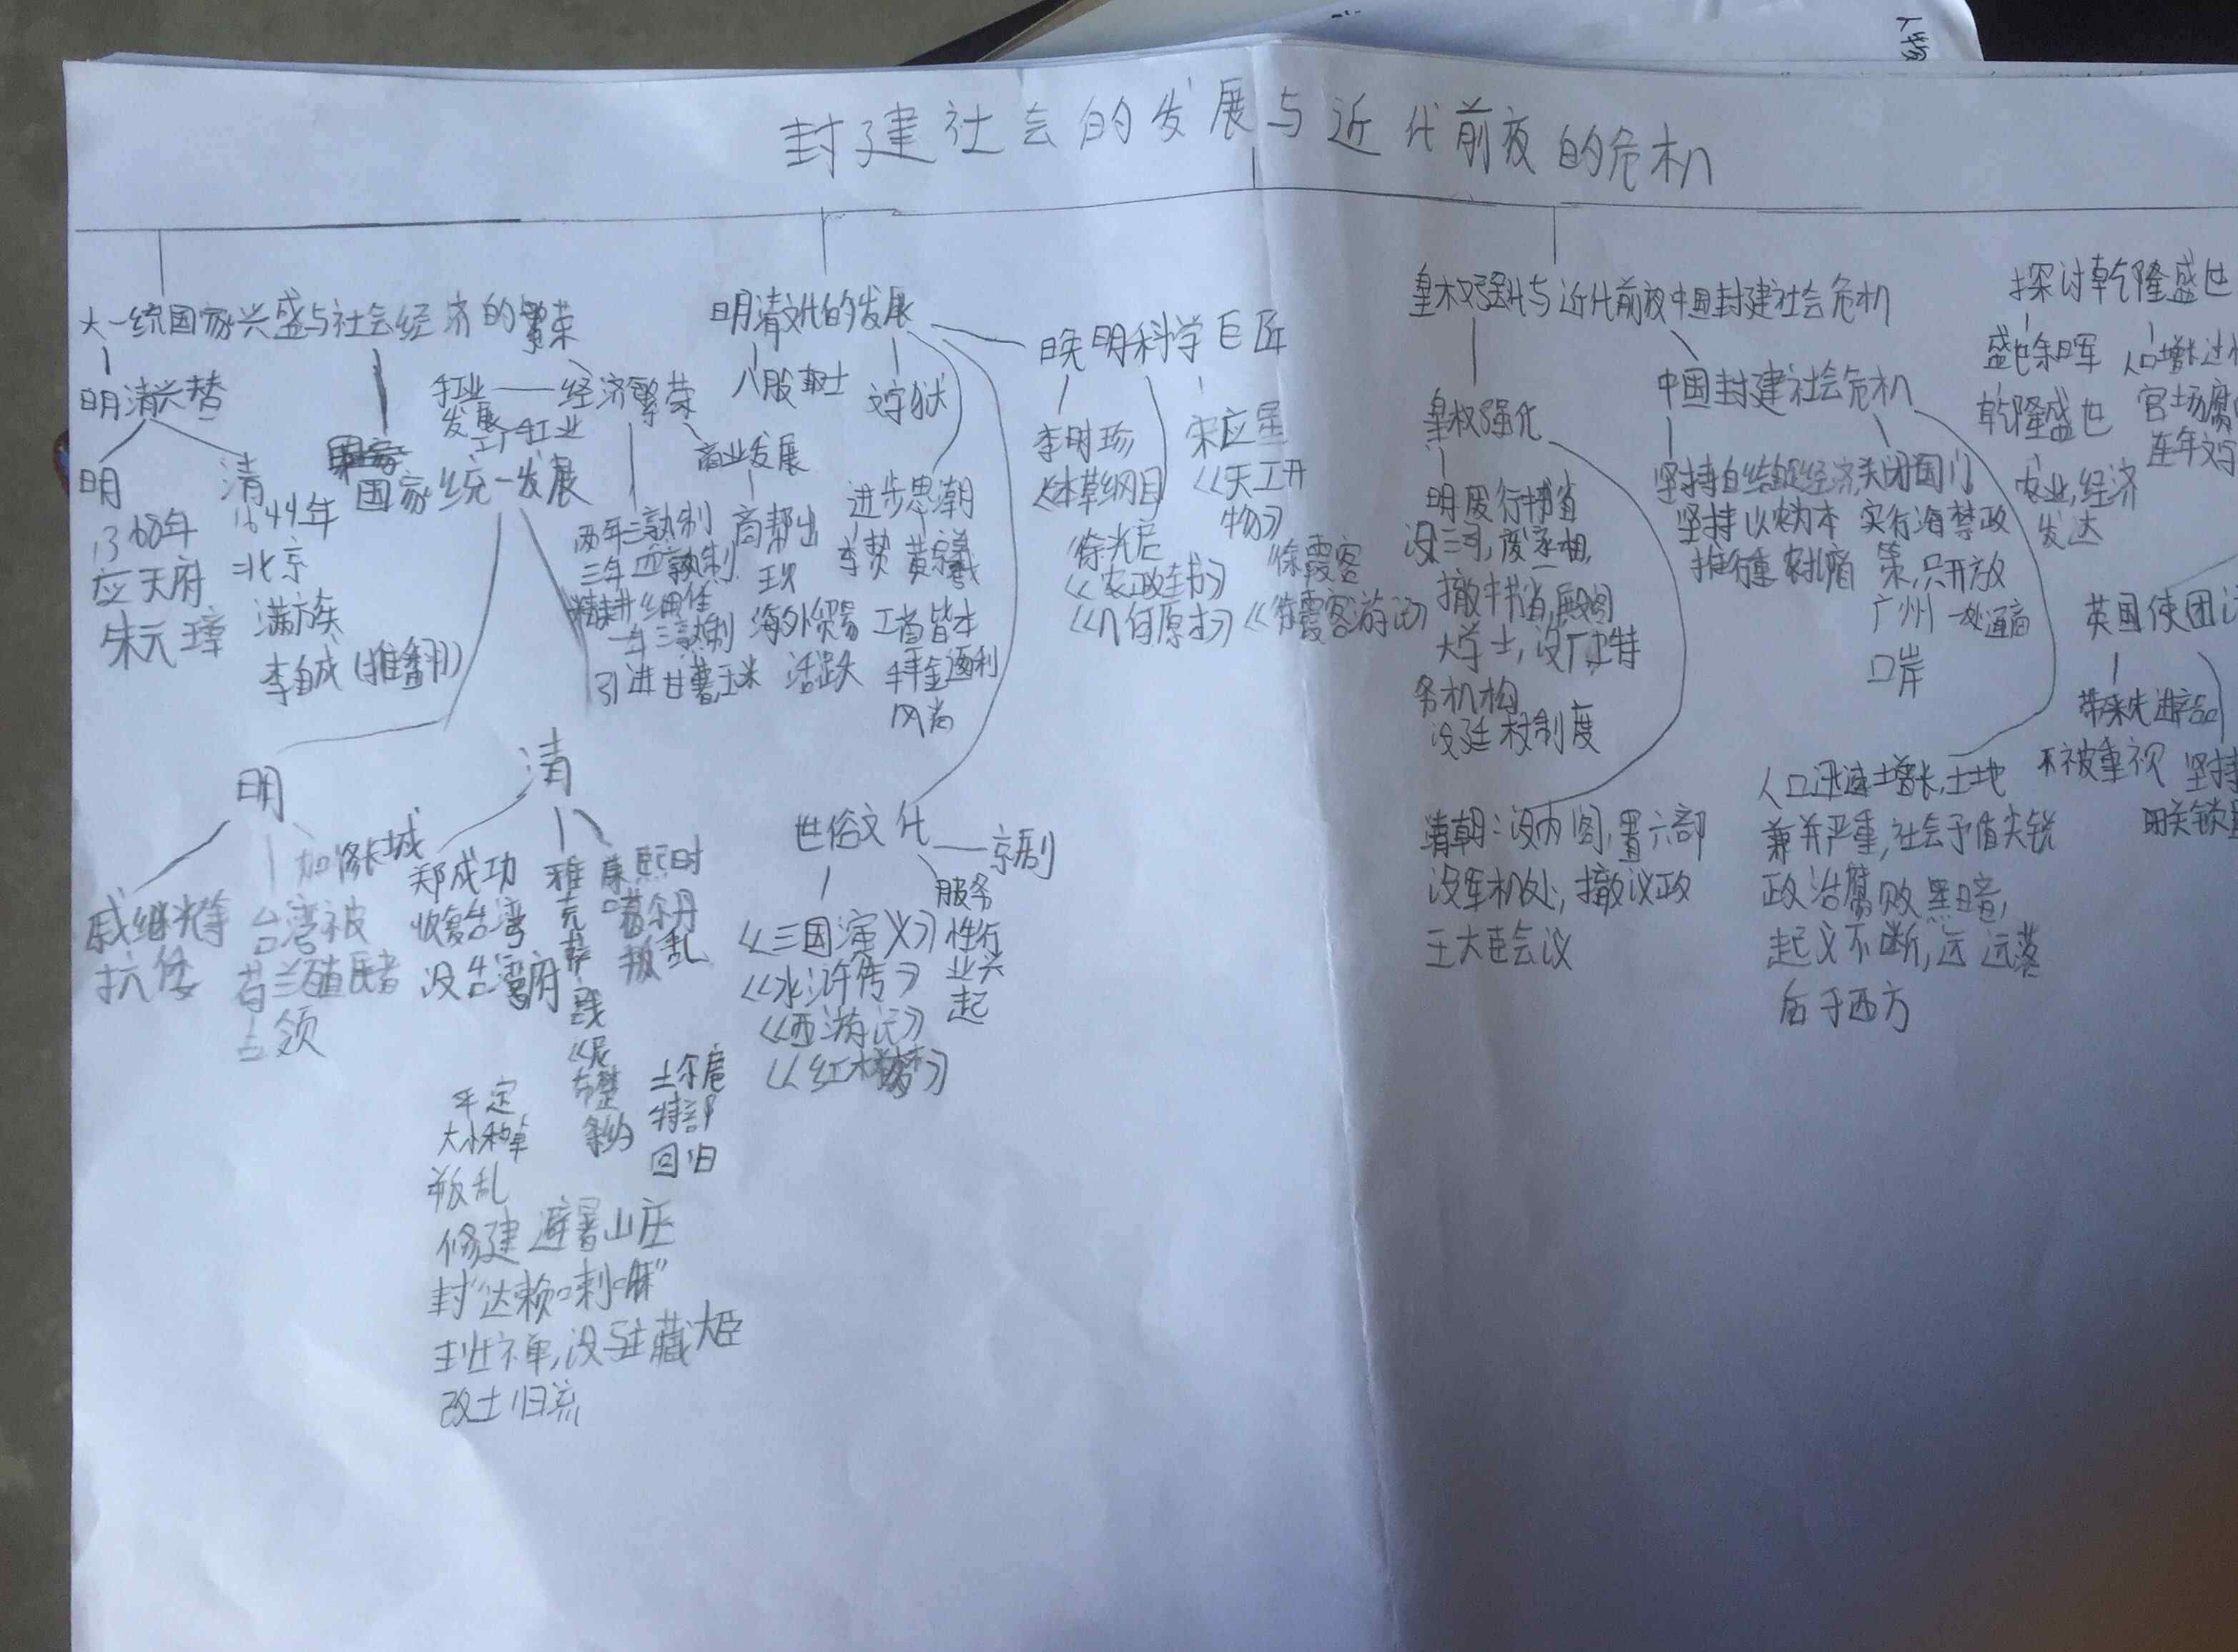 封建社会的发展与近代前夜的危机
大一统国家兴盛与社会经济的繁荣
明清兴替
明
1368年
应天府
朱元璋
清
1644年
北京
满族
李自成(推翻)
国家统一发展
明
戚继光等
抗倭
台湾被
荷兰殖民者
占领
加修长城
清
郑成功
收复台湾
设台湾府
雅克萨之战
《尼布楚条约
康熙时
噶尔丹
叛乱
土尔扈
特部
回归
平定
大小和卓
叛乱
修建避暑山庄
封"达赖喇嘛"
封班禅,设驻藏大臣
改土归流
经济繁荣
手工业
发展
工厂手工业
两年三熟制
三年五熟制
精耕细作
一年三熟制
引进甘薯,玉米
商业发展
商帮出
现
海外贸易
活跃
明清文化的发展
八股取士
文字狱
进步思潮
李贽 黄宗羲
工商皆本
拜金逐利
风尚
世俗文化
京剧
服务
性行
业兴
起
《三国演义》
《水浒传》
《西游记》
《红楼梦》
晚明科学巨匠
李时珍
《本草纲目
徐光启
《农政全书》
《几何原本》
宋应星
《天工开
物》
徐霞客
《徐霞客游记》
皇权强化与近代前夜中国封建社会危机
皇权强化
明废行中书省
设三司,废丞相,
撤中书省,殿阁
大学士,设厂卫特
务机构
设廷杖制度
清朝:设内阁,置六部
设军机处,撤议政
王大臣会议
中国封建社会危机
坚持自给自足经济
坚持以农为本
推行重农抑商
关闭国门
实行海禁政
策,只开放
广州一处通商
口岸
人口迅速增长,土地
兼并严重,社会矛盾尖锐
政治腐败黑暗,
起义不断,远远落
后于西方
探讨乾隆盛世
盛世余晖
乾隆盛世
农业,经济
发达
人口增长过
官场腐
连年文字
英国使团
带来先进产品
不被重视
坚持
闭关锁